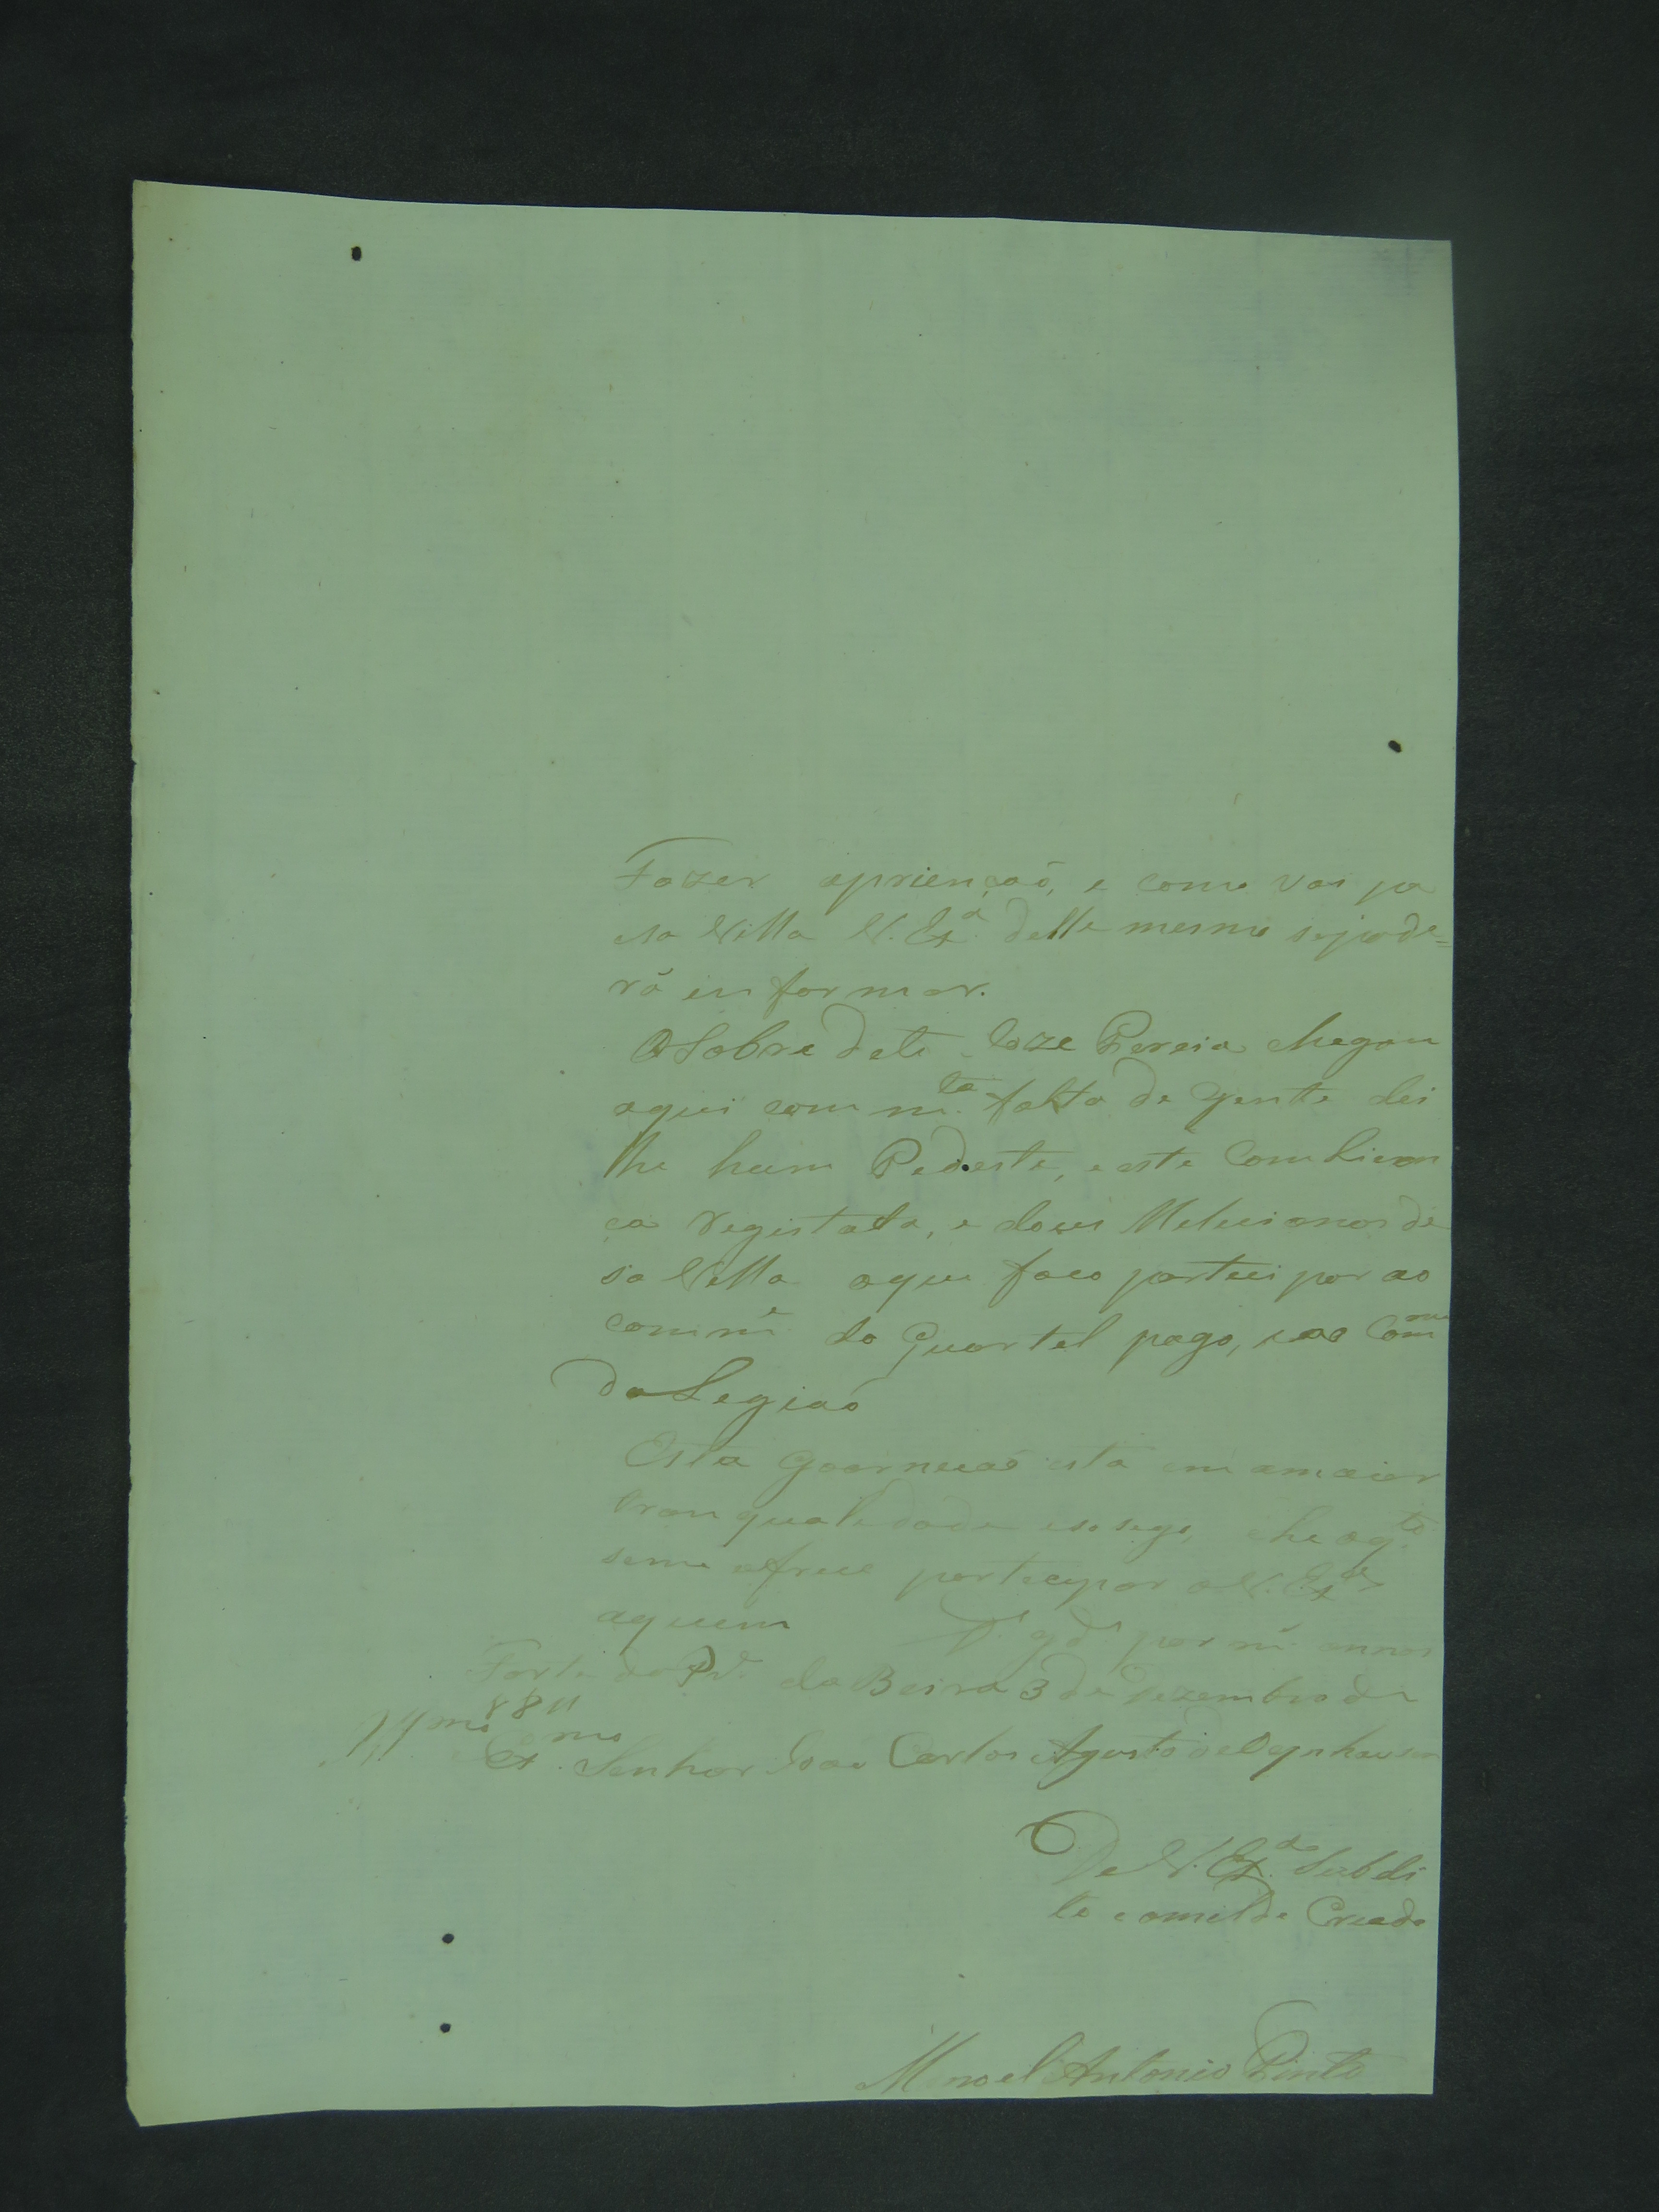 Fazer apriençaõ, e como vai pa
esa Villa V. Exª. delle mesmo sepode=
rá informar.
O Sobre dito Joze Pereia chegou
aqui com mta. falta de gente dei
lhe hum Pedeste, e este Com Licen
ça registada, e dous Melicianos de
sa Villa oque faco partecipar ao
comme. do Quartel pago, e ao Comme
da Legiaõ
Esta Goarnicaõ está em amaior
tranqualidade esosego, he oqto.
seme ofrece partecipar a V. Exª.
aquem Ds. gde. por ms. annos
Forte do Pe. da Beira 3 de Dezembro de
1811
Illmo. Exmo. Senhor Joaõ Carlos Agusto de Oeynhausen
De V. Exª. Subdi
to e omilde Creado
Manoel Antonio Pinto